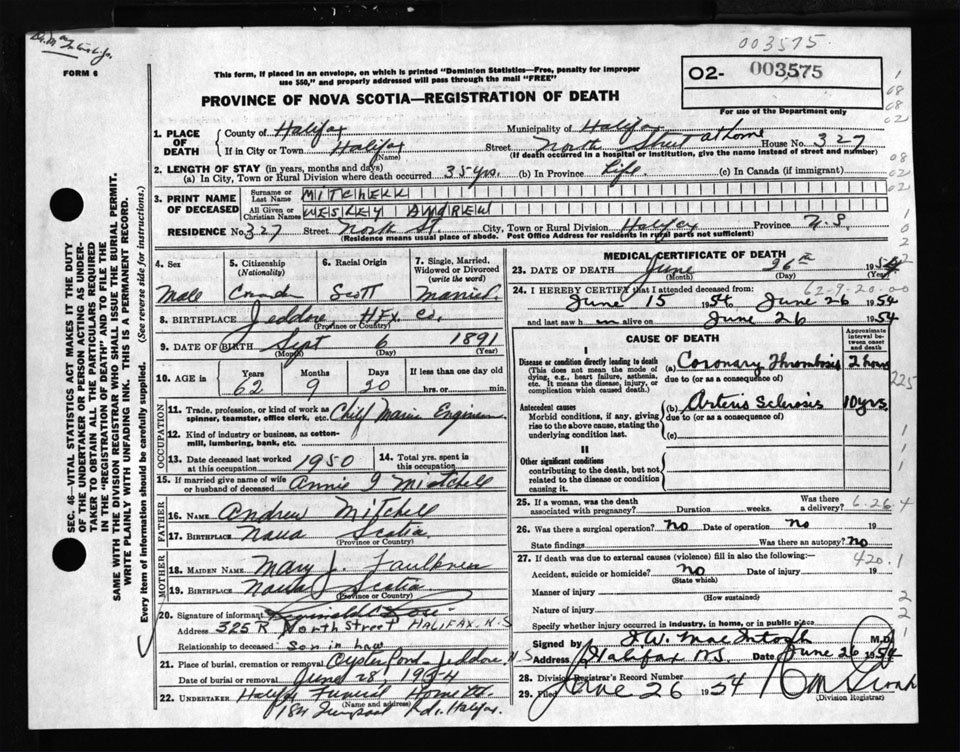 003575
FORM 6
This form, if placed in an envelope, on which is printed "Dominion Statistics—Free, penalty for improper
use $50," and properly addressed will pass through the mail "FREE"
02- 003575
For use of the Department only
PROVINCE OF NOVA SCOTIA—REGISTRATION OF DEATH
SEC. 46—VITAL STATISTICS ACT MAKES IT THE DUTY
OF THE UNDERTAKER OR PERSON ACTING AS UNDER-
TAKER TO OBTAIN ALL THE PARTICULARS REQUIRED
IN THE "REGISTRATION OF DEATH" AND TO FILE THE
SAME WITH THE DIVISION REGISTRAR WHO SHALL ISSUE THE BURIAL PERMIT.
WRITE PLAINLY WITH UNFADING INK. THIS IS A PERMANENT RECORD.
Every item of information should be carefully supplied. (See reverse side for instructions.)
1. PLACE OF DEATH
County of Halifax Municipality of Halifax
If in City or Town Halifax Street North Street at home House No. 327
(Name) (If death occurred in a hospital or institution, give the name instead of street and number)
2. LENGTH OF STAY (in years, months and days)
(a) In City, Town or Rural Division where death occurred 35 yrs. (b) In Province Life. (c) In Canada (if immigrant)
3. PRINT NAME OF DECEASED
Surname or Last Name MITCHELL
All Given or Christian Names WESLEY ANDREW
RESIDENCE No. 327 Street North St. City, Town or Rural Division Halifax Province N.S.
(Residence means usual place of abode. Post Office Address for residents in rural parts not sufficient)
4. Sex Male
5. Citizenship (Nationality) Canada
6. Racial Origin Scott
7. Single, Married, Widowed or Divorced (write the word) Married.
8. BIRTHPLACE Jeddore Hfx Co.
(Province or Country)
9. DATE OF BIRTH Sept 6 1891
(Month) (Day) (Year)
10. AGE in Years Months Days If less than one day old
62 9 20 hrs. or min.
OCCUPATION
11. Trade, profession, or kind of work as spinner, teamster, office clerk, etc. Chief Marine Engineer
12. Kind of industry or business, as cotton-mill, lumbering, bank, etc.
13. Date deceased last worked at this occupation 1950
14. Total yrs. spent in this occupation
15. If married give name of wife or husband of deceased Annie J Mitchell
FATHER
16. NAME Andrew Mitchell
17. BIRTHPLACE Nova Scotia
(Province or Country)
MOTHER
18. MAIDEN NAME Mary J. Faulkner
19. BIRTHPLACE Nova Scotia
(Province or Country)
20. Signature of informant
Address 325 R North Street HALIFAX. N.S
Relationship to deceased Son in law
21. Place of burial, cremation or removal Oyster Pond Jeddore, N.S
Date of burial or removal June 28 1954
22. UNDERTAKER Halifax Funeral Home
(Name and address)
Rd. Halifax.
MEDICAL CERTIFICATE OF DEATH
23. DATE OF DEATH June 26th 1954
(Month) (Day) (Year)
62-9-20-00
24. I HEREBY CERTIFY that I attended deceased from:
June 15 1954 June 26 1954
and last saw h im alive on June 26 1954
CAUSE OF DEATH
Approximate interval between onset and death
I
Disease or condition directly leading to death
(This does not mean the mode of dying, e.g., heart failure, asthenia, etc. It means the disease, injury, or complication which caused death.)
(a) Coronary Thrombosis 2 hours
due to (or as a consequence of)
Antecedent causes
Morbid conditions, if any, giving rise to the above cause, stating the underlying condition last.
(b) Arterio Sclerosis 10 yrs.
due to (or as a consequence of)
(c)
II
Other significant conditions
contributing to the death, but not related to the disease or condition causing it.
25. If a woman, was the death associated with pregnancy? Duration weeks. Was there a delivery? 6-26-4
26. Was there a surgical operation? no Date of operation no 19
State findings Was there an autopsy? No
27. If death was due to external causes (violence) fill in also the following:— 420.1
Accident, suicide or homicide? no Date of injury 19
(State which)
Manner of injury
(How sustained)
Nature of injury
Specify whether injury occurred in industry, in home, or in public place
Signed by J.W. MacIntosh M.D.
Address Halifax NS Date June 26 1954
28. Division Registrar's Record Number
29. Filed June 26 1954
(Division Registrar)